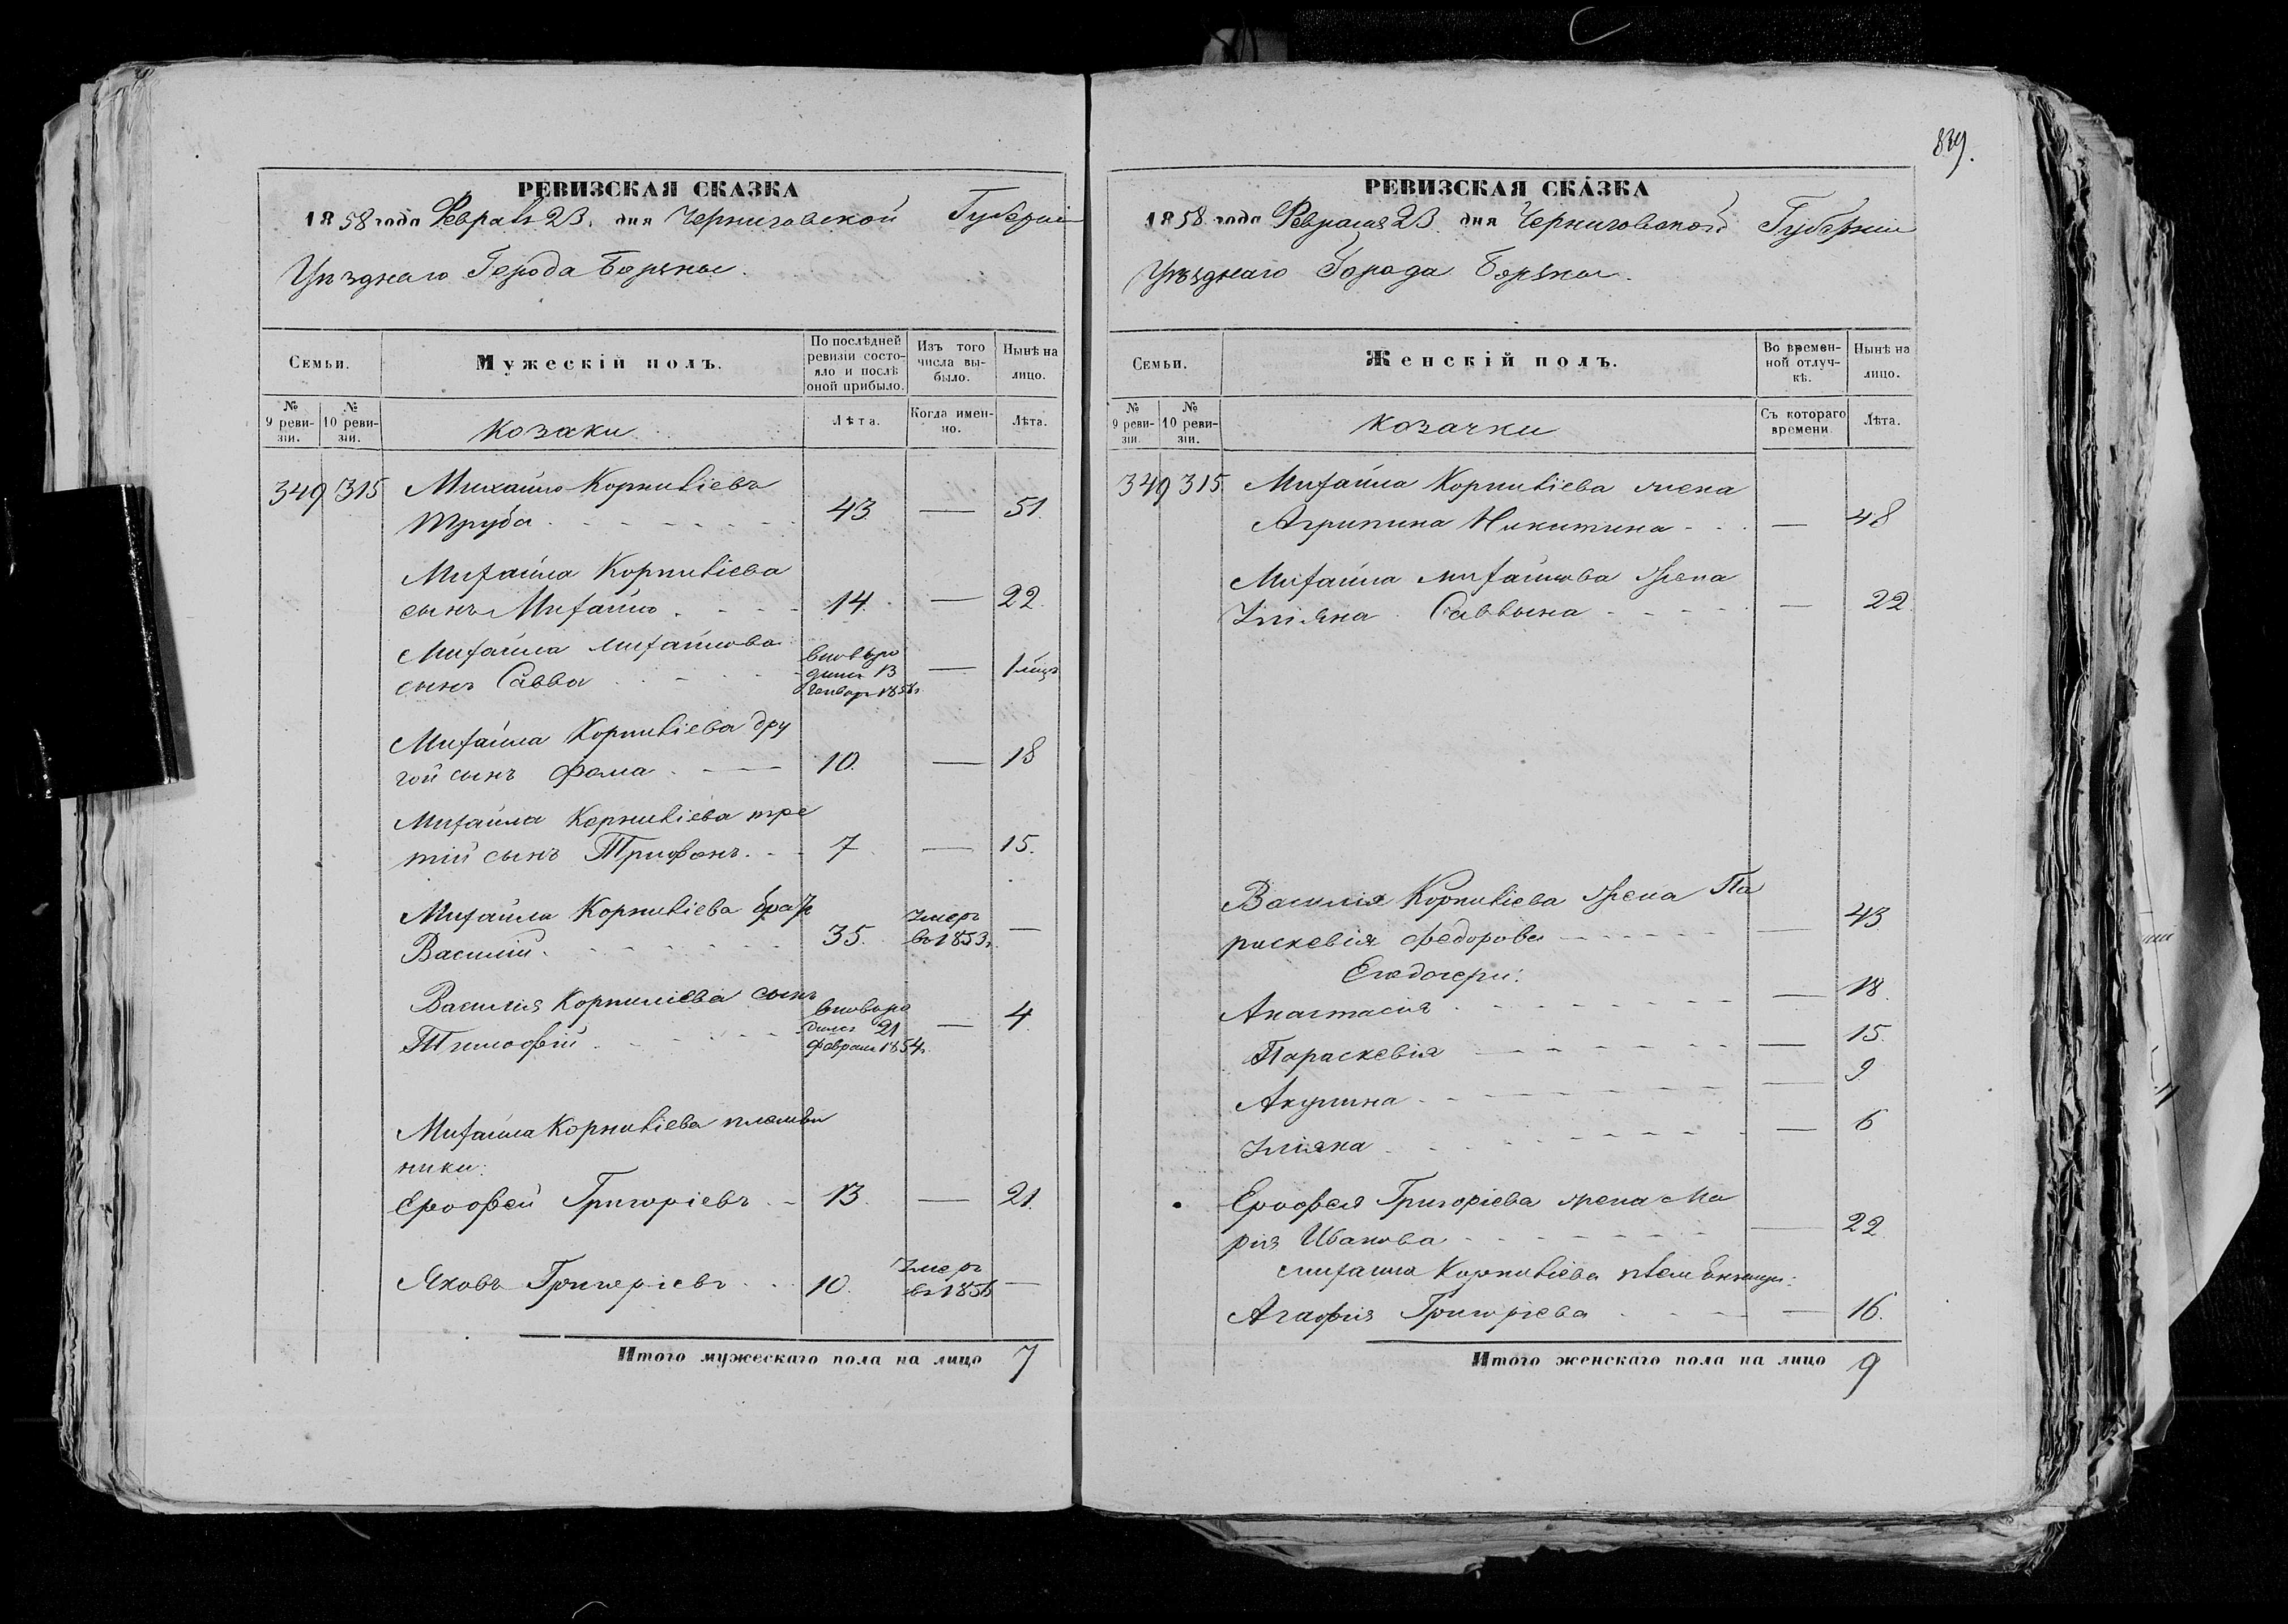 839.
РЕВИЗСКАЯ СКАЗКА
1858 года Февраля 23. дня Черниговской Губерніи
Уѣзднаго Города Борзны.
Семьи.
Мужескій полъ.
По послѣдней ревизіи состояло и послѣ оной прибыло.
Изъ того числа выбыло.
Нынѣ на лицо.
№ 9 ревизіи.
№ 10 ревизіи.
Козаки
Лѣта.
Когда именно.
Лѣта.
349 315 Михайло Корниліевъ
Труба 43 — 51.
Михайла Корниліева
сынъ Михайло 14. — 22.
Михайла Михайлова
сынъ Савва вновьро
дился 13 — 1 мѣцъ
Генваря 1858г.
Михайла Корниліева дру
гой сынъ Фома 10. — 18
Михайла Корниліева тре
тій сынъ Трифонъ. 7 — 15.
Михайла Корниліева братъ
Василій. 35. Умеръ въ 1853г. —
Василія Корниліева сынъ
Тимофѣй вновьро
дился 21 — 4
Февраля 1854г.
Михайла Корниліева племян
ники:
Ерофей Григоріевъ 13. — 21.
Яковъ Григоріевъ 10. Умеръ въ 1856 —
Итого мужескаго пола на лицо 7
РЕВИЗСКАЯ СКАЗКА
1858 года Февраля 23. дня Черниговской Губерніи
Уѣзднаго Города Борзны.
Семьи.
Женскій полъ.
Во временной отлучкѣ.
Нынѣ на лицо.
№ 9 ревизіи
№ 10 ревизіи.
Козачки
Съ котораго времени
Лѣта.
349 315. Михайла Корниліева жена
Агрипина Никитина — 48
Михайла Михайлова жена
Уліяна Саввина — 22
Василія Корниліева жена Па
раскевія Федорова — 43
Его дочери:
Анастасія — 18.
Параскевія — 15.
Акулина — 9
Уліяна — 6
Ерофея Григоріева жена Ма
рія Иванова — 22
Михайла Корниліева племянница:
Агафія Григоріева — 16.
Итого женскаго пола на лицо 9